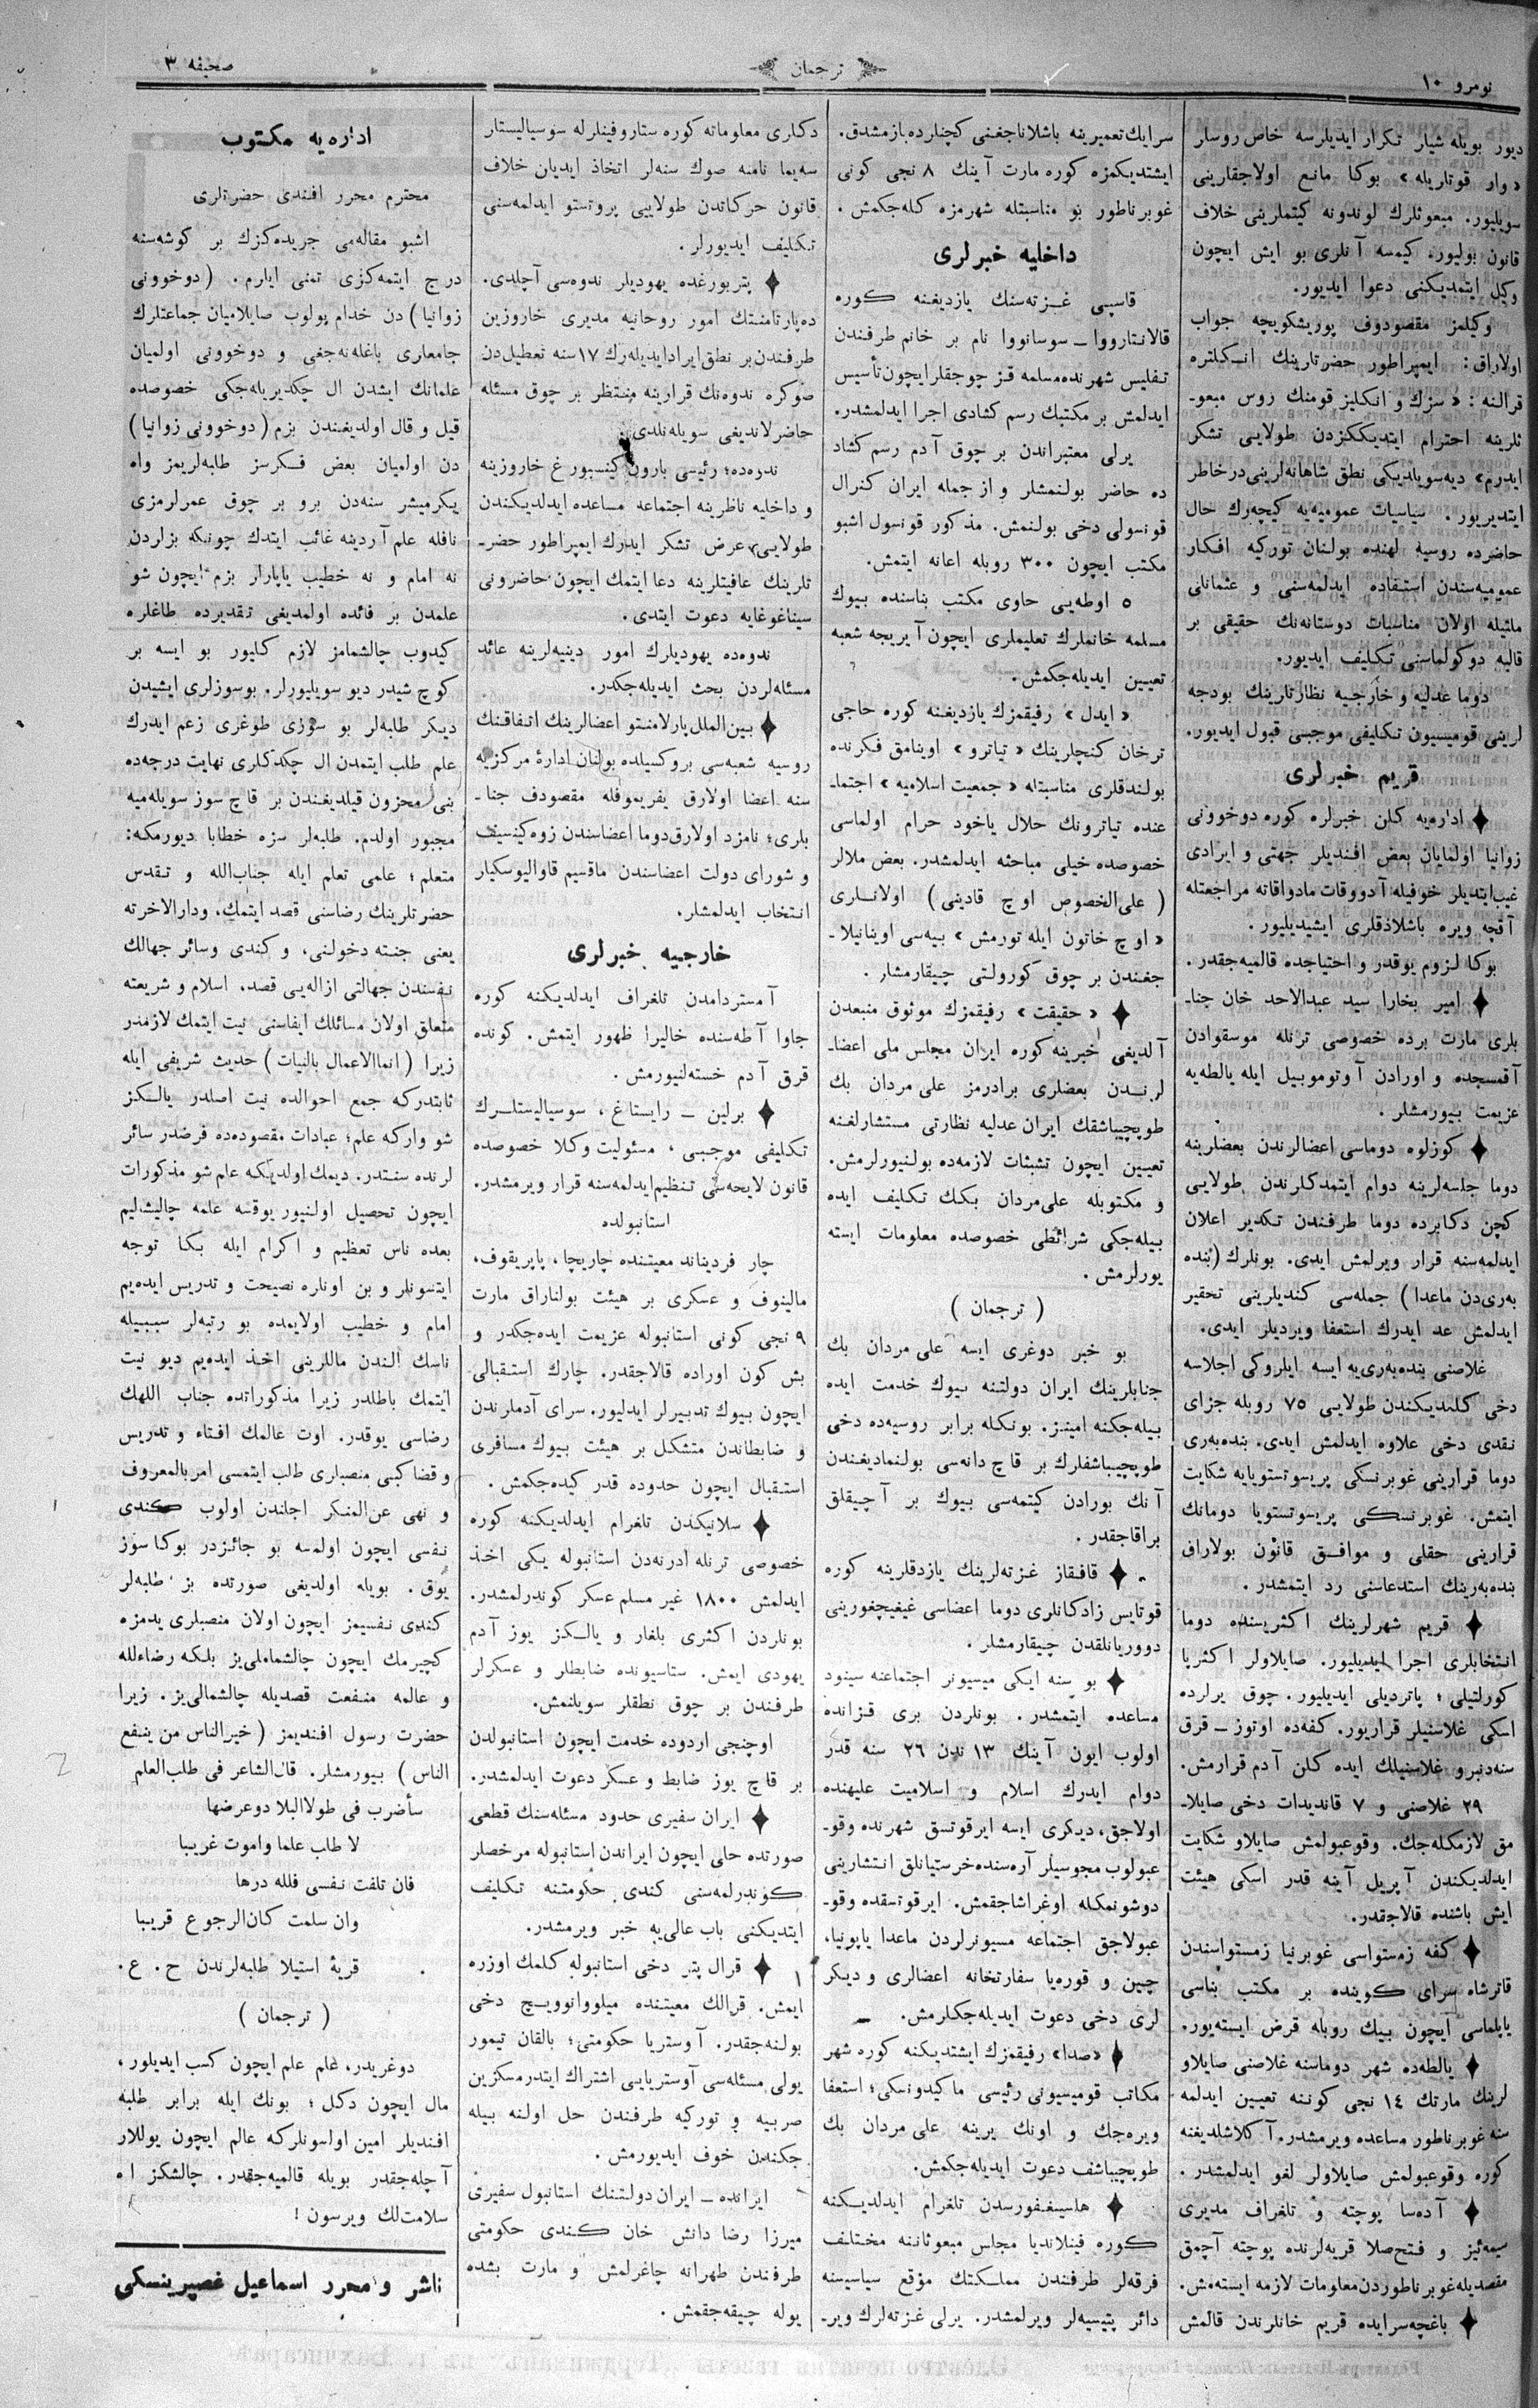 نومرو ١٠
ترجمان
صحيفه ٣
ديور بويله شيار تكرار ايديلرسه خاص روسلر
«وار قوتاريله» بوكا مانع اولاجقارينى
سويليور. مبعوثلرك لوندونه كيتملرينى خلاف
قانون بوليور. كيمسه آنلرى بو ايش ايچون
وكيل ايتمديكنى دعوا ايديور.
وكيلمز مقصودوف پوريشكويچه جواب
اولاراق: ايمپراطور حضرتارينك انكلتره
قرالنه: «سزك و انكليز قومنك روس مبعو-
ثلرينه احترام ايتديككزدن طولايى تشكر
ايدرم» ديه سويلديكى نطق شاهانه لرينى درخاطر
ايتديريور. سياسيات عموميه يه كيچه رك حال
حاضرده روسيه لهنده بولنان توركيه افكار
عموميه سندن استفاده ايدلمه سنى و عثمانلى
ملتيله اولان مناسبات دوستانه نك حقيقى بر
قالبه دوكولماسنى تكليف ايديور.
دوما عدليه و خارجيه نظارتارينك بودجه
لرينى قوميسيون تكليفى موجبى قبول ايديور.
قريم خبرلرى
اداره يه كلن خبرلره كوره دوخوونى
زوانيا اولمايان بعض افنديلر جهتى و ايرادى
غيب ايتديلر خوفيله آدووقات مادواقاته مراجعتله
آقچه ويره باشلاذقلرى ايشيديليور.
بوكا لزوم يوقدر و احتياجده قالميه جقدر.
امير بخارا سيد عبدالاحد خان جنا-
بلرى مارت برده خصوصى ترنله موسقوادن
آقمسجده و اورادن آوتوموبيل ايله يالطه يه
عزيمت بيورمشلر.
كوزلوه دوماسى اعضالرندن بعضلرينه
دوما جلسه لرينه دوام ايتمدكلرندن طولايى
كچن دكابرده دوما طرفندن تكدير اعلان
ايدلمه سنه قرار ويرلمش ايدى. بونلرك (بنده
به رى دن ماعدا) جمله سى كنديلرينى تحقير
ايدلمش عد ايدرك استعفا ويرديلر ايدى.
غلاصنى بنده به رى يه ايسه ايلروكى اجلاسه
دخى كلنديكندن طولايى ٧٥ روبله جزاى
نقدى دخى علاوه ايدلمش ايدى. بنده به رى
دوما قرارينى غوبرنسكى پريسوتستويايه شكايت
ايتمش. غوبرنسكى پريسوتستويا دومانك
قرارينى حقلى و موافق قانون بولاراق
بنده به رينك استدعاسنى رد ايتمشدر.
قريم شهرلرينك اكثريسنده دوما
انتخابلرى اجرا ايديليور. صايلاولر اكثريا
كورلتيلى؛ پاترديلى ايديليور. چوق يرلرده
اسكى غلاسنيلر قراريور. كفه ده اوتوز ـ قرق
سنه دنبرو غلاسنيلك ايده كلن آدم قرارمش.
٢٩ غلاصنى و ٧ قانديدات دخى صايلا-
مق لازمكله جك. وقوعبولمش صايلاو شكايت
ايدلديكندن آپريل آينه قدر اسكى هيئت
ايش باشنده قالاجقدر.
كفه زمستواسى غوبرنيا زمستواسندن
قاترشاه سراى كوينده بر مكتب بناسى
ياپلماسى ايچون بيك روبله قرض ايسته يور.
يالطه ده شهر دوماسنه غلاصنى صايلاو
لرينك مارتك ١٤ نجى كوننه تعيين ايدلمه
سنه غوبرناطور مساعده ويرمشدر. آكلاشلديغنه
كوره وقوعبولمش صايلاولر لغو ايدلمشدر.
آده سا پوچته و تلغراف مديرى
سيمه ئيز و فتح صلا قريه لرنده پوچته آچمق
مقصديله غوبرناطوردن معلومات لازمه ايسته مش.
باغچه سرايده قريم خانلرندن قالمش
سرايك تعميرينه باشلاناجغنى كچنلرده يازمشدق.
ايشتديكمزه كوره مارت آينك ٨ نجى كونى
غوبرناطور بو مناسبتله شهرمزه كله جكمش.
داخليه خبرلرى
قاسپى غزته سنك يازديغنه كوره
قالانتارووا ـ سوسانووا نام بر خانم طرفندن
تفليس شهرنده مسلمه قز چوجقلر ايچون تأسيس
ايدلمش بر مكتبك رسم كشادى اجرا ايدلمشدر.
يرلى معتبراندن بر چوق آدم رسم كشاد
ده حاضر بولنمشلر و از جمله ايران كنرال
قونسولى دخى بولنمش. مذكور قونسول اشبو
مكتب ايچون ٣٠٠ روبله اعانه ايتمش.
٥ اوطه يى حاوى مكتب بناسنده بيوك
مسلمه خانملرك تعليملرى ايچون آيريجه شعبه
تعيين ايديله جكمش.
«ايدل» رفيقمزك يازديغنه كوره حاجى
ترخان كنچلرينك «تياترو» اوينامق فكرنده
بولندقلرى مناسبتله «جمعيت اسلاميه» اجتما-
عنده تياترونك حلال ياخود حرام اولماسى
خصوصده خيلى مباحثه ايدلمشدر. بعض ملالر
(على الخصوص اوچ قادينى) اولانلرى
«اوچ خاتون ايله تورمش» بيه سى اوينانيلا-
جغندن بر چوق كورولتى چيقارمشلر.
«حقيقت» رفيقمزك موثوق منبعدن
آلديغى خبرينه كوره ايران مجلس ملى اعضا-
لرندن بعضلرى برادرمز على مردان بك
طوپچيباشفك ايران عدليه نظارتى مستشارلغنه
تعيين ايچون تشبثات لازمه ده بولنيورلرمش.
و مكتوبله على مردان بكك تكليف ايده
بيله جكى شرائطى خصوصده معلومات ايسته
يورلرمش.
(ترجمان)
بو خبر دوغرى ايسه على مردان بك
جنابلرينك ايران دولتنه بيوك خدمت ايده
بيله جكنه امينز. بونكله برابر روسيه ده دخى
طوپچيباشفلرك بر قاچ دانه سى بولنماديغندن
آنك بورادن كيتمه سى بيوك بر آچيقلق
براقاجقدر.
قافقاز غزته لرينك يازدقلرينه كوره
قوتايس زادكانلرى دوما اعضاسى غيغيچغورينى
دووريانلقدن چيقارمشلر.
بو سنه ايكى ميسيونر اجتماعنه سينود
مساعده ايتمشدر. بونلردن برى قزانده
اولوب ايون آينك ١٣ ندن ٢٦ سنه قدر
دوام ايدرك اسلام و اسلاميت عليهنده
اولاجق، ديكرى ايسه ايرقوتسق شهرنده وقو-
عبولوب مجوسيلر آره سنده خرستيانلق انتشارينى
دوشونمكله اوغراشاجقمش. ايرقوتسقده وقو-
عبولاجق اجتماعه مسيونرلردن ماعدا ياپونيا،
چين و قوره يا سفارتخانه اعضالرى و ديكر
لرى دخى دعوت ايديله جكلرمش.
«صدا» رفيقمزك ايشتديكنه كوره شهر
مكاتب قوميسيونى رئيسى ماكيدونسكى؛ استعفا
ويره جك و اونك يرينه على مردان بك
طوپچيباشف دعوت ايديله جكمش.
هلسينغفورسدن تلغرام ايدلديكنه
كوره فينلانديا مجلس مبعوثاننه مختلف
فرقه لر طرفندن مملكتك مؤقع سياسيسنه
دائر پتيسيه لر ويرلمشدر. يرلى غزته لرك وير-
دكلرى معلوماته كوره ستاروفينلر له سوسياليستلر
سه يما نامنه صوك سنه لر اتخاذ ايديان خلاف
قانون حركاتدن طولايى پروتستو ايدلمه سنى
تكليف ايديورلر.
پتربورغده يهوديلر ندوه سى آچلدى.
ده پارتامنتك امور روحانيه مديرى خاروزين
طرفندن بر نطق ايراد ايديله رك ١٧ سنه تعطيل دن
صوكره ندوه نك قرارينه منتظر بر چوق مسئله
حاضرلانديغى سويله نلدى.
ندوه ده؛ رئيسى بارون كينسبورغ خاروزينه
و داخليه ناظرينه اجتماعه مساعده ايدلديكندن
طولايى عرض تشكر ايدرك ايمپراطور حضر-
تلرينك عافيتلرينه دعا ايتمك ايچون حاضرونى
سيناغوغايه دعوت ايتدى.
ندوه ده يهوديلرك امور دينيه لرينه عائد
مسئله لردن بحث ايديله جكدر.
بين الملل پارلامنتو اعضالرينك اتفاقنك
روسيه شعبه سى بروكسيلده بولنان ادارۀ مركزيه
سنه اعضا اولارق يفريموفله مقصودف جنا-
بلرى؛ نامزد اولارق دوما اعضاسندن زوه كينسيف
و شوراى دولت اعضاسندن ماقسيم قاواليوسكيلر
انتخاب ايدلمشلر.
خارجيه خبرلرى
آمستردامدن تلغراف ايدلديكنه كوره
جاوا آطه سنده خاليرا ظهور ايتمش. كونده
قرق آدم خسته لنيورمش.
برلين ـ رايستاغ، سوسياليستلرك
تكليفى موجبى، مسئوليت وكلا خصوصده
قانون لايحه سى تنظيم ايدلمه سنه قرار ويرمشدر.
استانبولده
چار فرديناند معيتنده چاريچا، پاپريقوف،
مالينوف و عسكرى بر هيئت بولناراق مارت
٩ نجى كونى استانبوله عزيمت ايده جكدر و
بش كون اوراده قالاجقدر. چارك استقبالى
ايچون بيوك تدبيرلر ايدليور. سراى آدملرندن
و ضابطاندن متشكل بر هيئت بيوك مسافرى
استقبال ايچون حدوده قدر كيده جكمش.
سلانيكدن تلغرام ايدلديكنه كوره
خصوصى ترنله ادرنه دن استانبوله يكى اخذ
ايدلمش ١٨٠٠ غير مسلم عسكر كوندرلمشدر.
بونلردن اكثرى بلغار و يالكز يوز آدم
يهودى ايمش. ستاسيونده ضابطلر و عسكرلر
طرفندن بر چوق نطقلر سويلنمش.
اوچنجى اردوده خدمت ايچون استانبولدن
بر قاچ يوز ضابط و عسكر دعوت ايدلمشدر.
ايران سفيرى حدود مسئله سنك قطعى
صورتده حلى ايچون ايراندن استانبوله مرخصلر
كوندرلمه سنى كندى حكومتنه تكليف
ايتديكنى باب عالى يه خبر ويرمشدر.
قرال پتر دخى استانبوله كلمك اوزره
ايمش. قرالك معيتنده ميلووانوويچ دخى
بولنه جقدر. آوستريا حكومتى؛ بالقان تيمور
يولى مسئله سى آوستريايى اشتراك ايتدرمسكزين
صربيه و توركيه طرفندن حل اولنه بيله
جكندن خوف ايديورمش.
ايرانده ـ ايران دولتنك استانبول سفيرى
ميرزا رضا دانش خان كندى حكومتى
طرفندن طهرانه چاغرلمش و مارت بشده
يوله چيقه جقمش.
اداره يه مكتوب
محترم محرر افندى حضرتلرى
اشبو مقاله مى جريده كزك بر كوشه سنه
درج ايتمه كزى تمنى ايلرم. (دوخوونى
زوانيا) دن خدام پولوب صايلاميان جماعتلرك
جامعلرى باغله نه جغى و دوخوونى اولميان
علمانك ايشدن ال چكديريله جكى خصوصده
قيل و قال اولديغندن بزم (دوخوونى زوانيا)
دن اولميان بعض فكرسز طلبه لريمز واه
يكرميشر سنه دن برو بر چوق عمرلرمزى
نافله علم آردينه غائب ايتدك چونكه بزلردن
نه امام و نه خطيب ياپارلر بزم ايچون شو
علمدن بر فائده اولمديغى تقديرده طاغلره
كيدوب چالشمامز لازم كليور بو ايسه بر
كوچ شيدر ديو سويليورلر. بوسوزلرى ايشيدن
ديكر طلبه لر بو سوزى طوغرى زعم ايدرك
علم طلب ايتمدن ال چكدكلرى نهايت درجه ده
بنى محزون قيلديغندن بر قاچ سوز سويله ميه
مجبور اولدم. طلبه لر سزه خطابا ديورمكه:
متعلم؛ علمى تعلم ايله جناب الله و تقدس
حضرتلرينك رضاسنى قصد ايتمك، ودارالاخرته
يعنى جنته دخولنى، و كندى وسائر جهالك
نفسندن جهالتى ازاله يى قصد، اسلام و شريعته
متعلق اولان مسائلك ايفاسنى نيت ايتمك لازمدر
زيرا (انما الاعمال بالنيات) حديث شريفى ايله
ثابتدركه جمع احوالده نيت اصلدر يالكز
شو واركه علم؛ عبادات مقصوده ده فرضدر سائر
لرنده سنتدر. ديمك اولديكه علم شو مذكورات
ايچون تحصيل اولنيور يوقسه علمه چاليشه ليم
بعده ناس تعظيم و اكرام ايله بكا توجه
ايتسونلر و بن اونلره نصيحت و تدريس ايده يم
امام و خطيب اولايمده بو رتبه لر سببيله
ناسك الندن ماللرينى اخذ ايده يم ديو نيت
ايتمك باطلدر زيرا مذكوراتده جناب اللهك
رضاسى يوقدر. اوت عالمك افتاء و تدريس
و قضا كبى منصبلرى طلب ايتمسى امر بالمعروف
و نهى عن المنكر اجلندن اولوب كندى
نفسى ايچون اولمسه بو جائزدر بوكا سوز
يوق. بويله اولديغى صورتده بز طلبه لر
كندى نفسيمز ايچون اولان منصبلرى يدمزه
كچيرمك ايچون چالشماملى يز بلكه رضاء لله
و عالمه منفعت قصديله چالشمالى يز. زيرا
حضرت رسول افنديمز (خير الناس من ينفع
الناس) بيورمشلر. قال الشاعر فى طلب العلم
سأضرب فى طولا البلا دوعرضها
لا طلب علما واموت غريبا
فان تلفت نفسى فلله درها
وان سلمت كان الرجوع قريبا
قريۀ استيلا طلبه لرندن ح. ع.
(ترجمان)
دوغريدر، علم علم ايچون كسب ايديلور،
مال ايچون دكل؛ بونك ايله برابر طلبه
افنديلر امين اولسونلركه عالم ايچون يوللار
آچله جقدر بويله قالميه جقدر. چالشكز ا ه
سلامت لك ويرسون!
ناشر و محرر اسماعيل غصپرينسكى